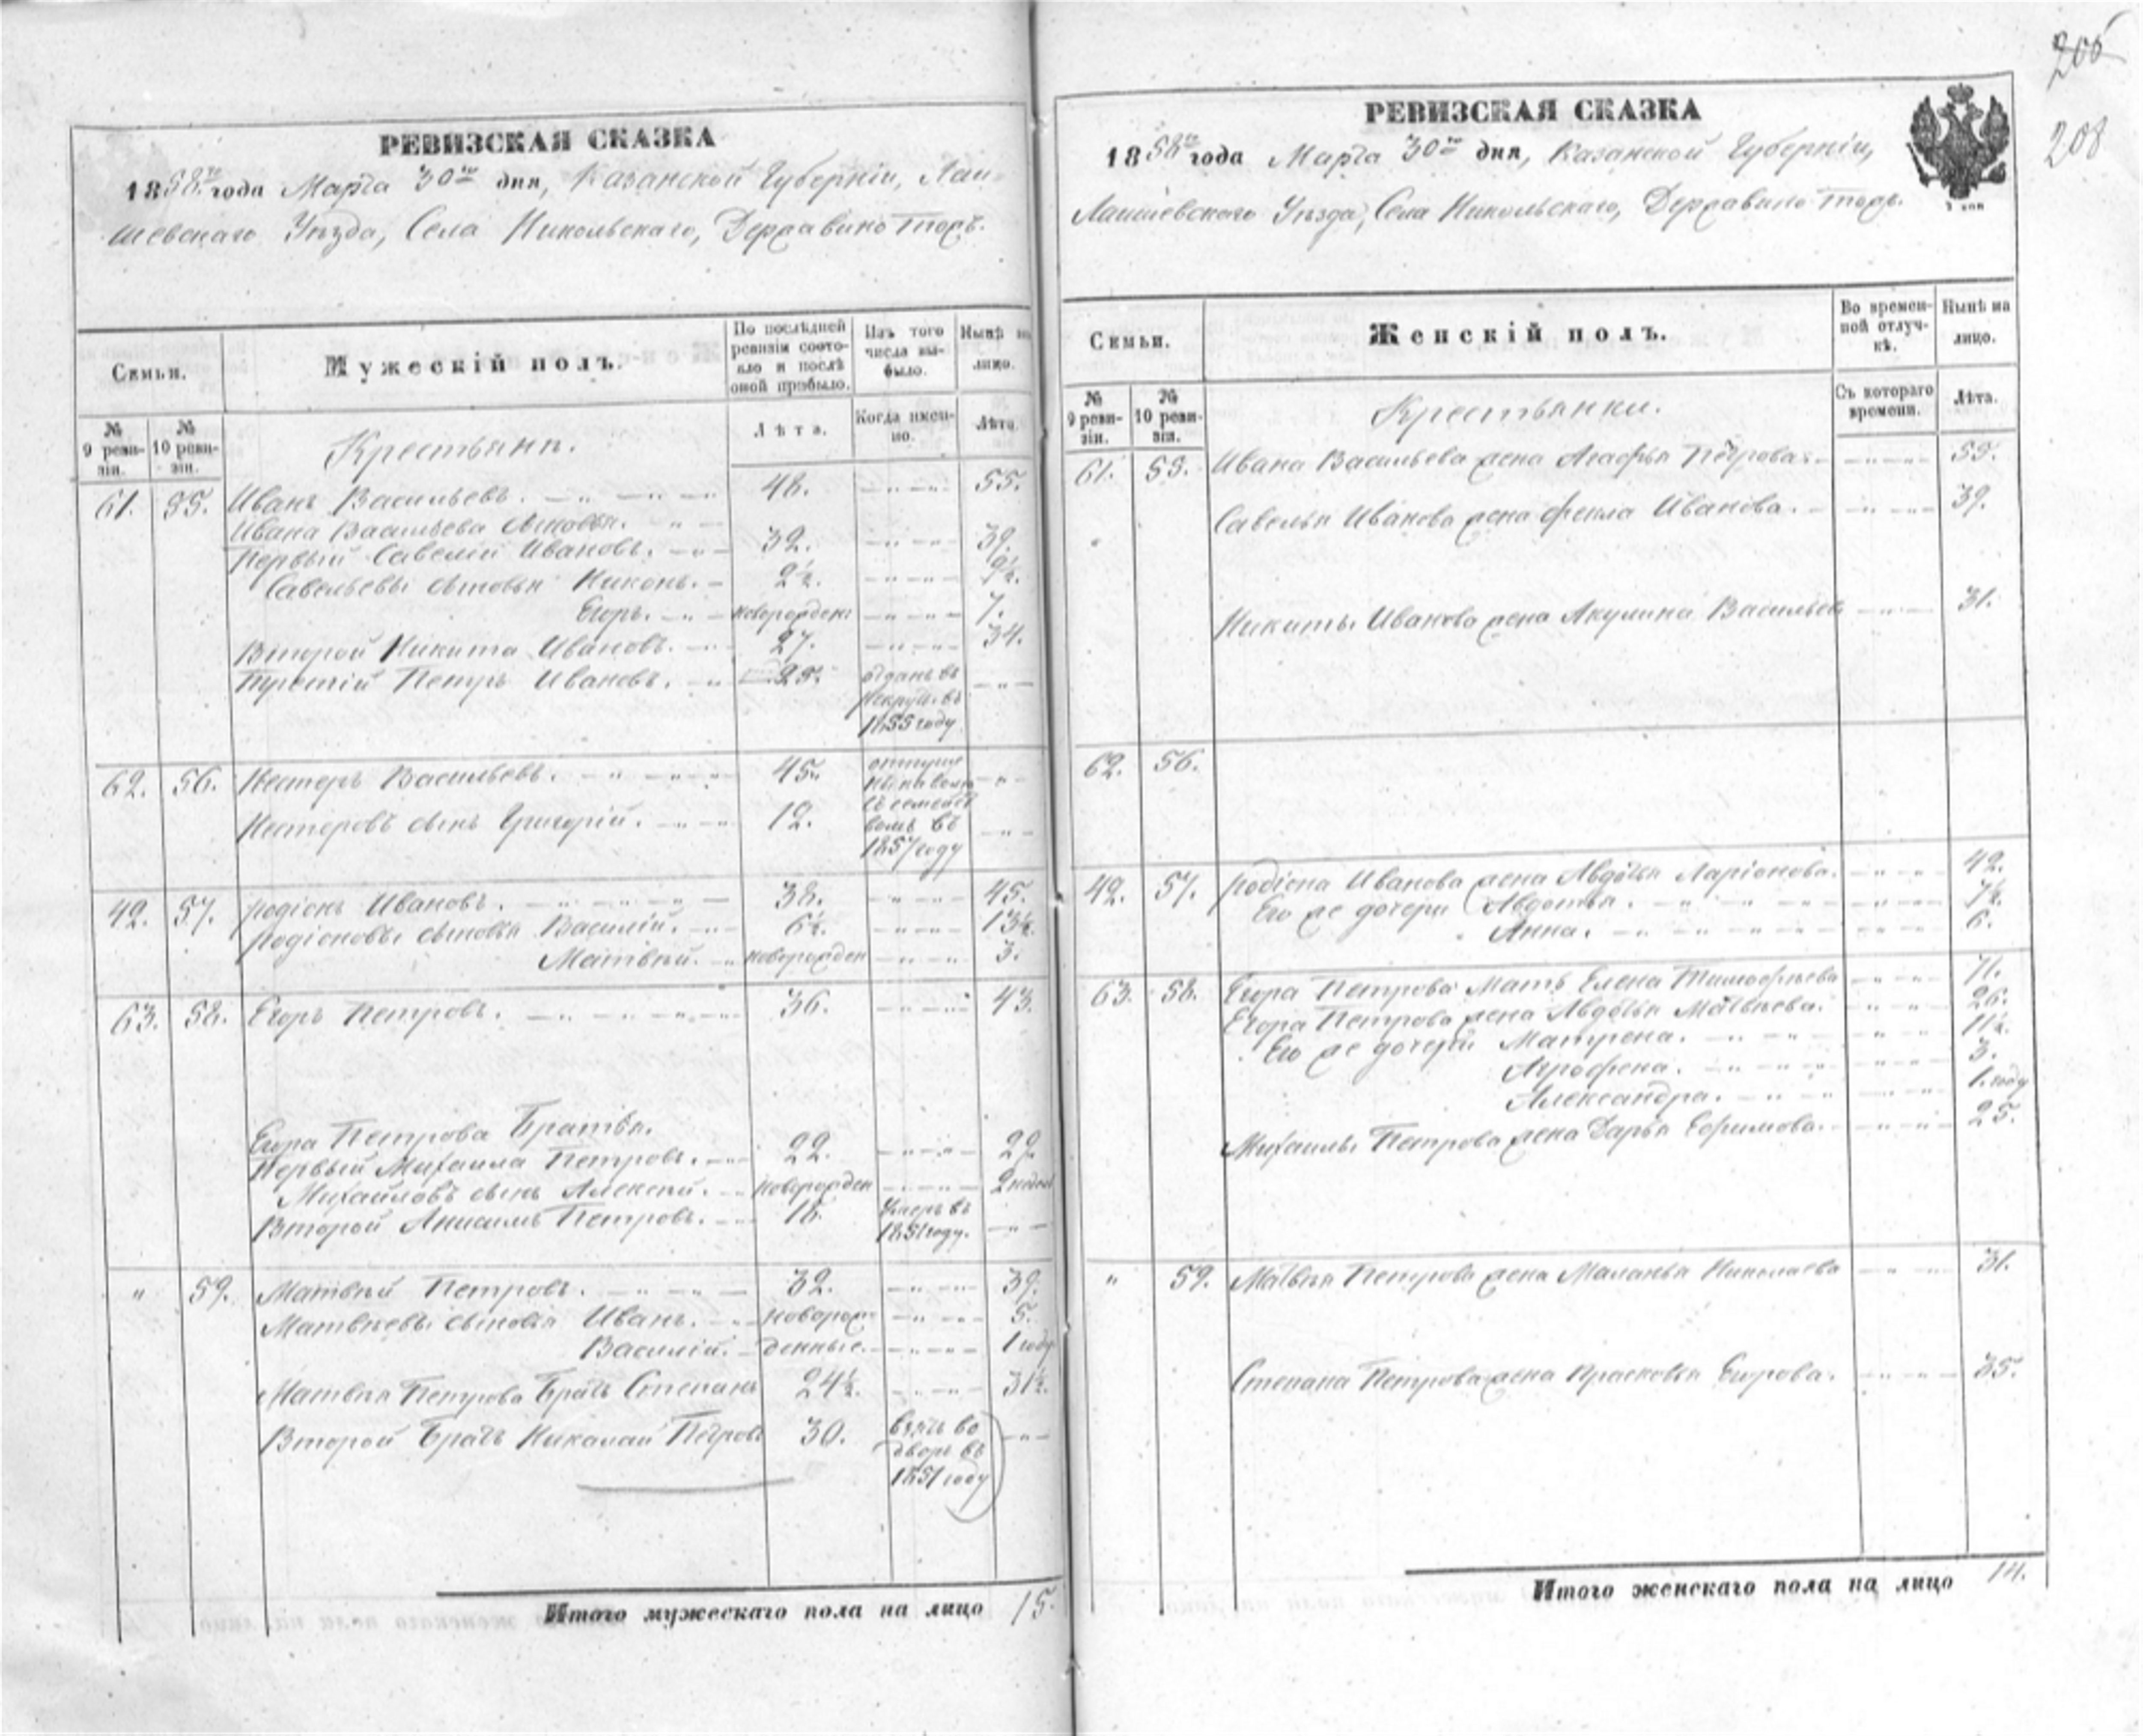 205
208
РЕВИЗСКАЯ СКАЗКА
1858го года Марта 30го дня, Казанской Губерніи, Лаи-
шевскаго Уѣзда, Села Никольскаго, Державино тожъ.
Семьи.
Мужескій полъ.
По послѣдней ревизіи состояло и послѣ оной прибыло.
Изъ того числа выбыло.
Нынѣ на лицо.
№ 9 ревизіи.
№ 10 ревизіи.
Крестьяне.
Лѣта.
Когда именно.
Лѣта.
61. 55. Иванъ Васильевъ. 48. 55.
Ивана Васильева сыновья.
Первый Савелій Ивановъ. 32. 39.
Савельевы сыновья Никонъ. 2½. 9½.
Егоръ. новорожден 7.
Второй Никита Ивановъ. 27. 34.
Третій Петръ Ивановъ. 25. отданъ въ рекруты въ 1855 году
62. 56. Нестеръ Васильевъ. 45.
Нестеровъ сынъ Григорій. 12. семейст вомъ въ 1857 году
42. 57. Родіонъ Ивановъ. 38. 45.
Родіоновы сыновья Василій. 6½. 13½.
Матвѣй. новорожден 3.
63. 58. Егоръ Петровъ. 36. 43.
Егора Петрова Братья.
Первый Михаила Петровъ. 22. 29.
Михайловъ сынъ Алексѣй. новорожден 2 недѣл
Второй Анисимъ Петровъ. 18. умеръ въ 1851 году.
" 59. Матвѣй Петровъ. 32. 39.
Матвѣевы сыновья Иванъ. новорож 5.
Василій. денные. 1 году
Матвѣя Петрова Братъ Степанъ 24½. 31½.
Второй Братъ Николай Петровъ 30. взятъ во дворъ въ 1851 году
Итого мужескаго пола на лицо 15.
РЕВИЗСКАЯ СКАЗКА
1858го года Марта 30го дня, Казанской Губерніи,
Лаишевскаго Уѣзда, Села Никольскаго, Державино тожъ.
Семьи.
Женскій полъ.
Во временной отлучкѣ.
Нынѣ на лицо.
№ 9 ревизіи.
№ 10 ревизіи.
Крестьянки.
Съ котораго времени.
Лѣта.
61. 55. Ивана Васильева жена Агафья Петрова. 55.
Савелья Иванова жена Фекла Иванова. 39.
Никиты Иванова жена Акулина Васильев 31.
62. 56.
42. 57. Родіона Иванова жена Авдотья Ларіонова. 42.
Его же дочери Авдотья. 7½.
Анна. 6.
63. 58. Егора Петрова Мать Елена Тимофѣева 71.
Егора Петрова жена Авдотья Матвѣева. 26.
Его же дочери Матрена. 11½.
Агрофена. 3.
Александра. 1 году
Михаилы Петрова жена Дарья Ефимова. 25.
" 59. Матвѣя Петрова жена Маланья Николаева 31.
Степана Петрова жена Прасковья Егорова. 35.
Итого женскаго пола на лицо 14.